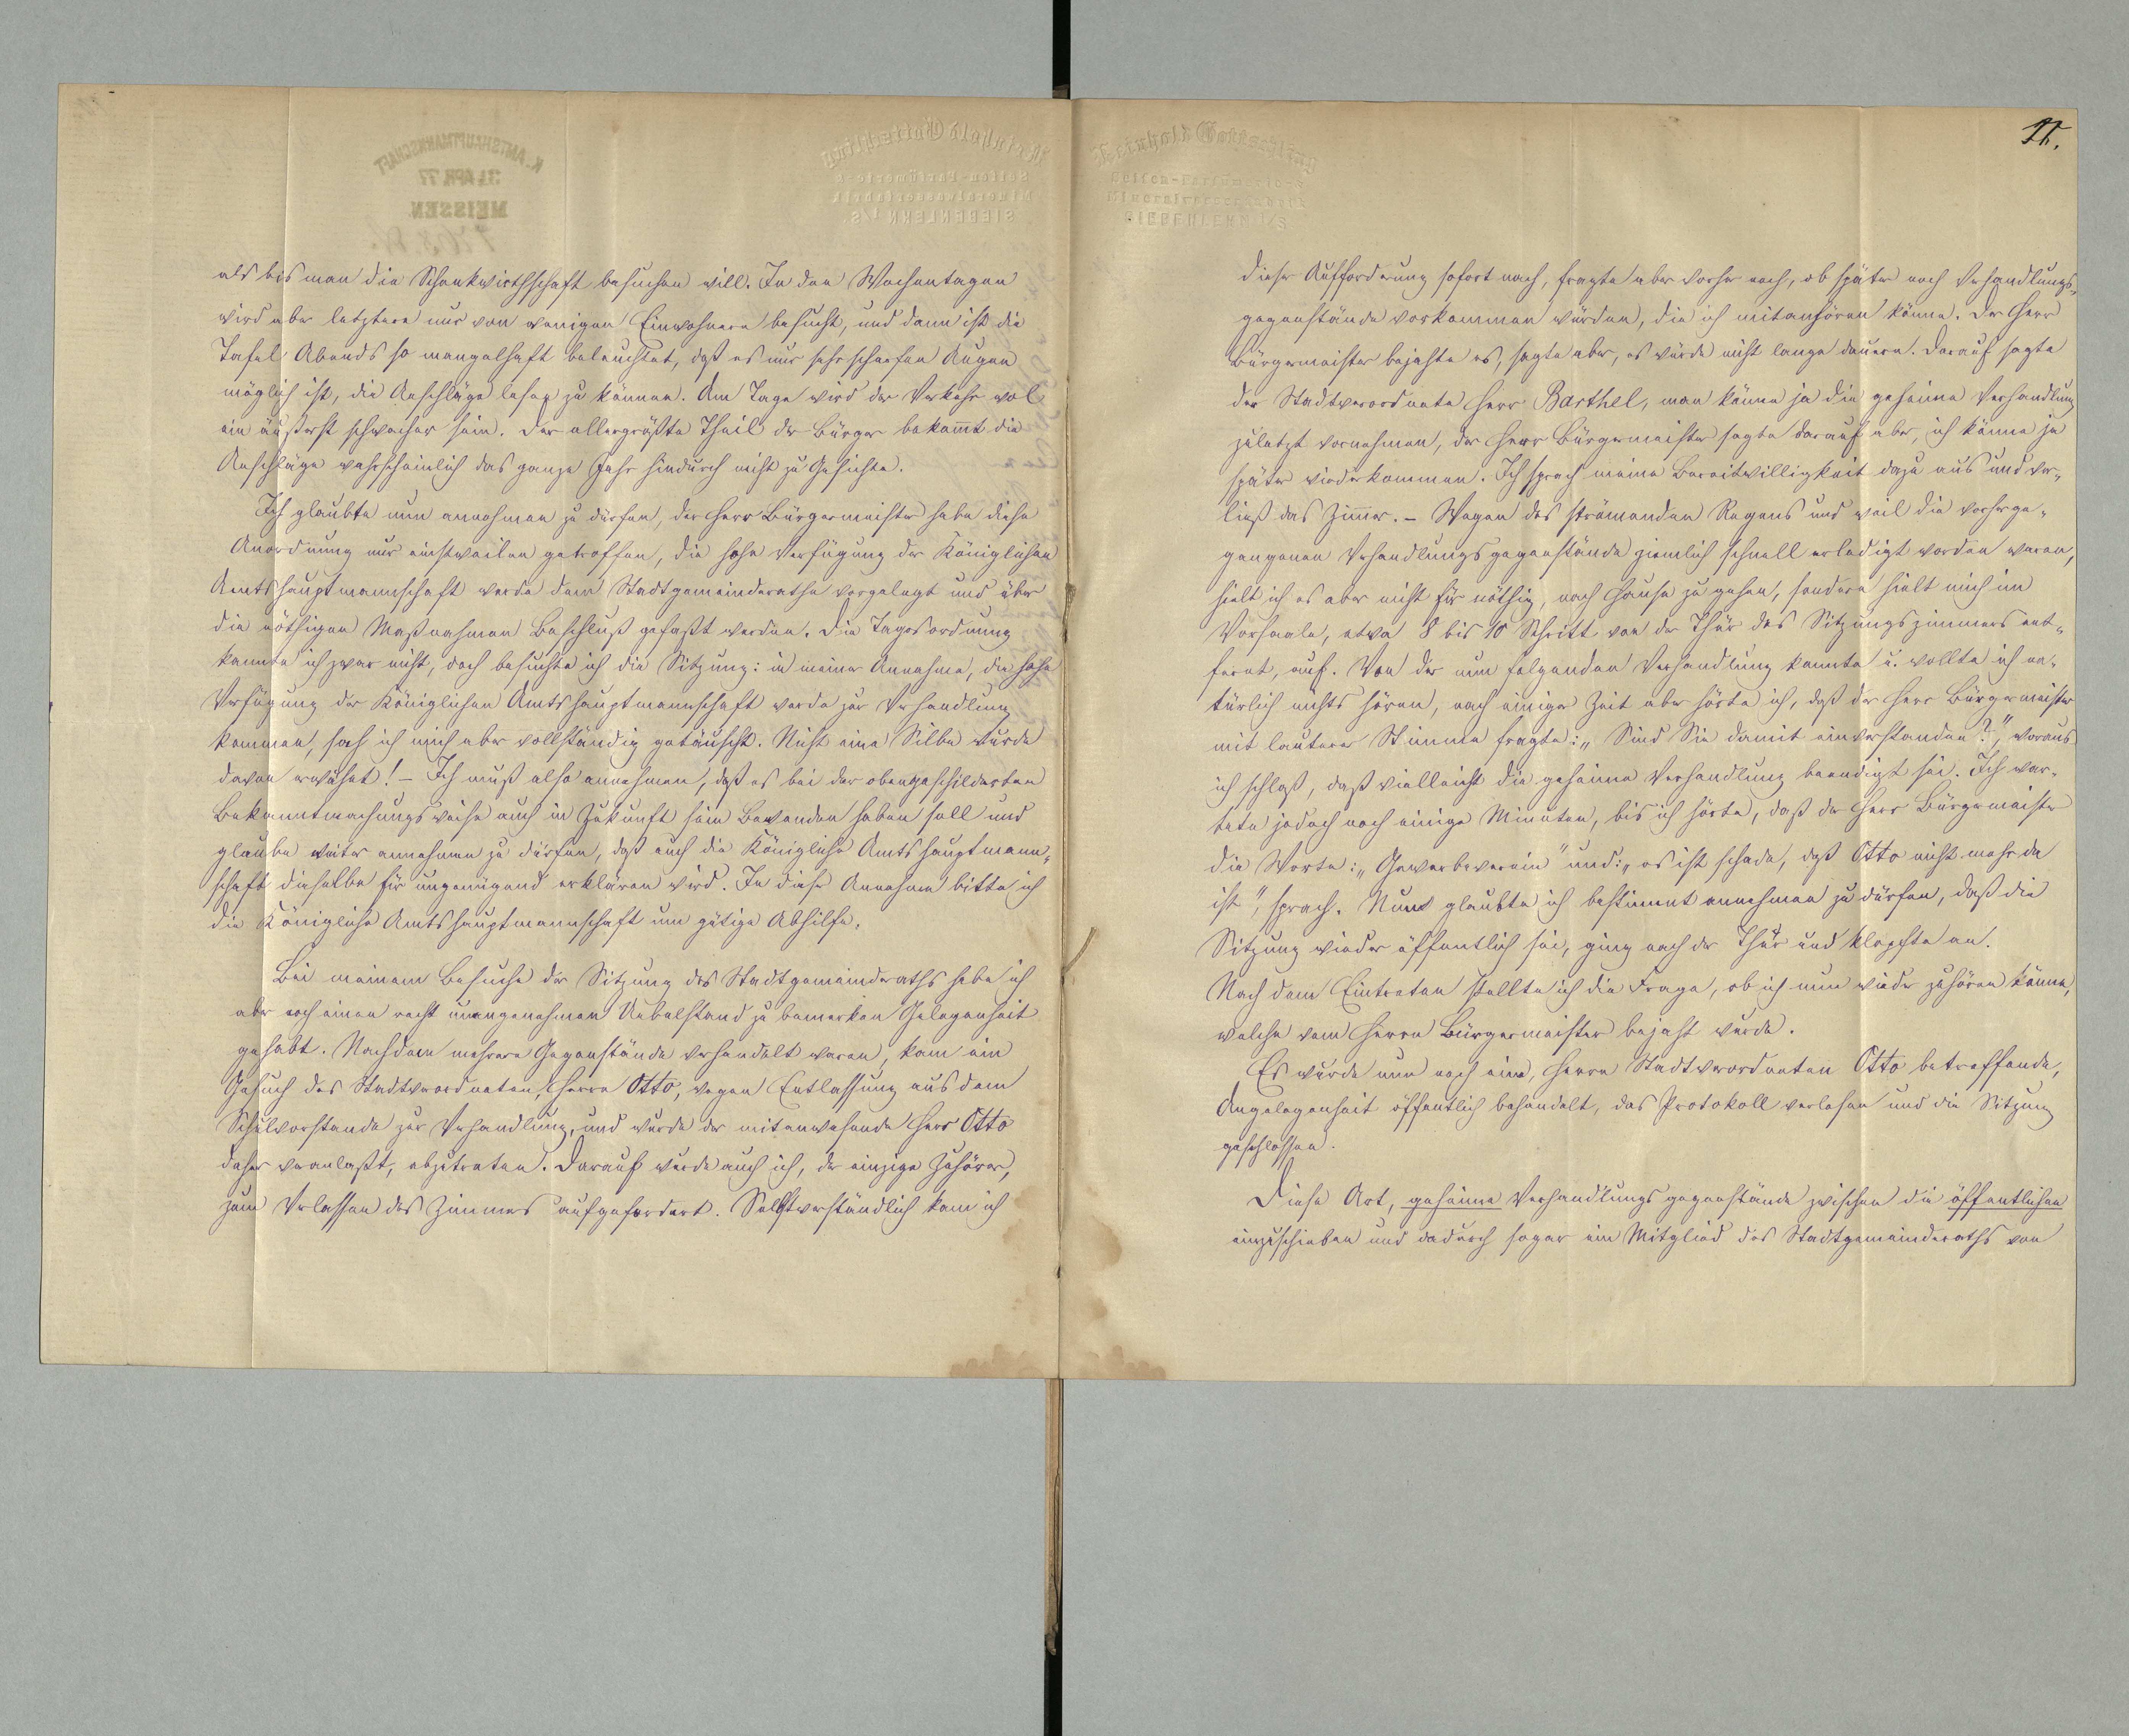 als bis man die Schankwirthschaft besuchen will. In den Wochentagen
wird aber letztere nur von wenigen Einwohnern besucht, und dann ist die
Tafel Abends so mangelhaft beleuchtet, daß es nur sehr scharfen Augen
möglich ist, die Anschläge lesen zu können. Am Tage wird der Verkehr wol
ein äußerst schwacher sein. Der allergrößte Theil der Bürger bekommt die
Anschläge wahrscheinlich das ganze Jahr hindurch nicht zu Gesichte.
Ich glaubte nun annehmen zu dürfen, der Herr Bürgermeister habe diese
Anordnung nur einstweilen getroffen, die hohe Verfügung der Königlichen
Amtshauptmannschaft werde dem Stadtgemeinderathe vorgelegt und über
die nöthigen Maßnahmen Beschluß gefaßt werden. Die Tagesordnung
kannte ich zwar nicht, doch besuchte ich die Sitzung: in meiner Annahme, die hohe
Verfügung der Königlichen Amtshauptmannschaft werde zur Verhandlung
kommen, sah ich mich aber vollständig getäuscht. Nicht eine Silbe wurde
davon erwähnt! – Ich muß also annehmen, daß es bei der obengeschilderten
Bekanntmachungsweise auch in Zukunft sein Bewenden haben soll und
glaube weiter annehmen zu dürfen, daß auch die Königliche Amtshauptmann-
schaft dieselbe für ungenügend erklären wird. In dieser Annahme bitte ich
die Königliche Amtshauptmannschaft um gütige Abhilfe.
Bei meinem Besuche der Sitzung des Stadtgemeinderaths habe ich
aber noch einen recht unangenehmen Uebelstand zu bemerken Gelegenheit
gehabt. Nachdem mehrere Gegenstände verhandelt waren, kam ein
Gesuch des Stadtverordneten, Herrn Otto, wegen Entlassung aus dem
Schulvorstande zur Verhandlung, und wurde der mitanwesende Herr Otto
daher veranlaßt, abzutreten. Darauf wurde auch ich, der einzige Zuhörer,
zum Verlassen des Zimmers aufgefordert. Selbstverständlich kam ich
11.
dieser Aufforderung sofort nach, fragte aber vorher noch, ob später noch Verhandlungs-
gegenstände vorkommen würden, die ich mitanhören könne. Der Herr
Bürgermeister bejahte es, sagte aber, es würde nicht lange dauern. Darauf sagte
der Stadtverordnete Herr Barthel, man könne ja die geheime Verhandlung
zuletzt vornehmen, der Herr Bürgermeister sagte darauf aber, ich könne ja
später wiederkommen. Ich sprach meine Bereitwilligkeit dazu aus und ver-
ließ das Zimmer. – Wegen des strömenden Regens und weil die vorherge-
gangenen Verhandlungsgegenstände ziemlich schnell erledigt worden waren,
hielt ich es aber nicht für nöthig, nach Hause zu gehen, sondern hielt mich im
Vorsaale, etwa 8 bis 10 Schritt von der Thür des Sitzungszimmers ent-
fernt, auf. Von der nun folgenden Verhandlung konnte u. wollte ich na-
türlich nichts hören, nach einiger Zeit aber hörte ich, daß der Herr Bürgermeister
mit lauterer Stimme fragte: „Sind Sie damit einverstanden?", woraus
ich schloß, daß vielleicht die geheime Verhandlung beendigt sei. Ich war-
tete jedoch noch einige Minuten, bis ich hörte, daß der Herr Bürgermeister
die Worte: „Gewerbeverein" und: „es ist schade, daß Otto nicht mehr da
ist", sprach. Nun glaubte ich bestimmt annehmen zu dürfen, daß die
Sitzung wieder öffentlich sei, ging nach der Thür und klopfte an.
Nach dem Eintreten stellte ich die Frage, ob ich nun wieder zuhören könne,
welche vom Herrn Bürgermeister bejaht wurde.
Es wurde nun noch eine, Herrn Stadtverordneten Otto betreffende,
Angelegenheit öffentlich behandelt, das Protokoll verlesen und die Sitzung
geschlossen.
Diese Art, geheime Verhandlungsgegenstände zwischen die öffentlichen
einzuschieben und dadurch sogar ein Mitglied des Stadtgemeinderaths von